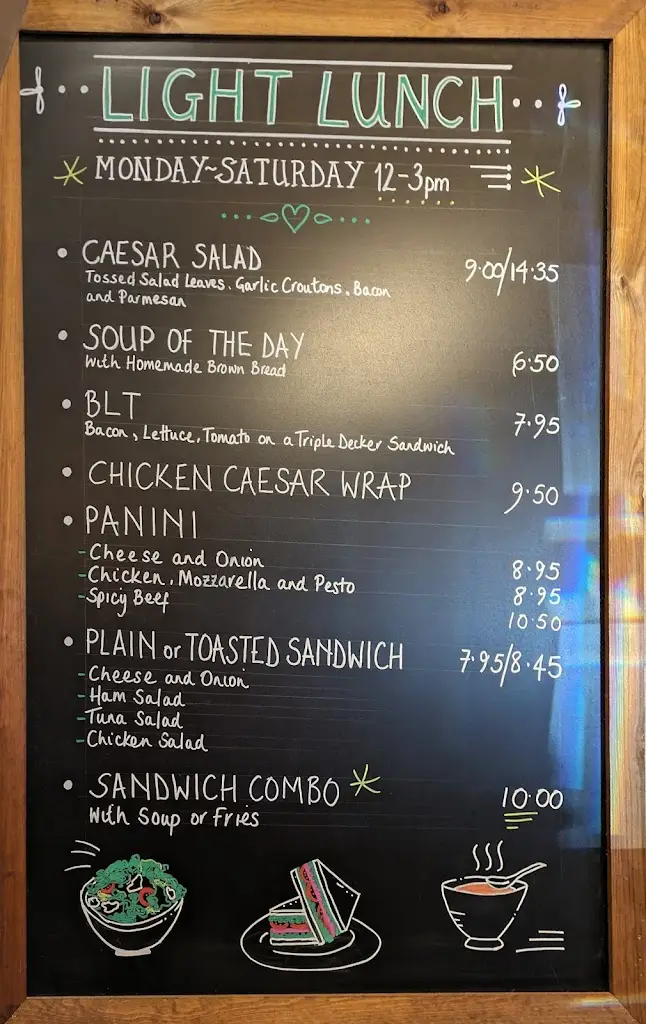 LIGHT LUNCH
MONDAY~SATURDAY 12-3pm
• CAESAR SALAD 9.00/14.35
Tossed Salad Leaves, Garlic Croutons, Bacon
and Parmesan
• SOUP OF THE DAY
with Homemade Brown Bread 6.50
• BLT 7.95
Bacon, Lettuce, Tomato on a Triple Decker Sandwich
• CHICKEN CAESAR WRAP 9.50
• PANINI
- Cheese and Onion 8.95
- Chicken, Mozzarella and Pesto 8.95
- Spicy Beef 10.50
• PLAIN or TOASTED SANDWICH 7.95/8.45
- Cheese and Onion
- Ham Salad
- Tuna Salad
- Chicken Salad
• SANDWICH COMBO 10.00
with Soup or Fries